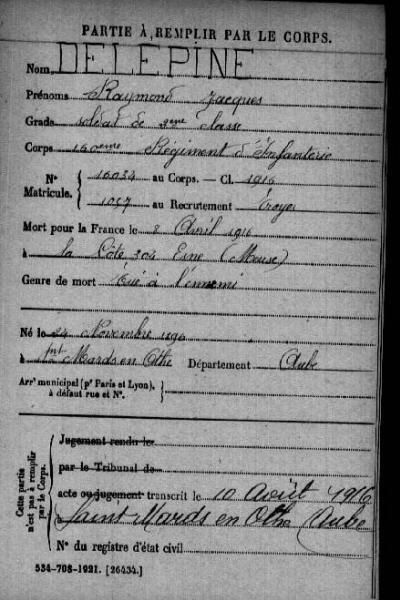 PARTIE À REMPLIR PAR LE CORPS.
Nom DELEPINE
Prénoms Raymond Jacques
Grade soldat de 2eme classe
Corps 160eme Régiment d'Infanterie
N° Matricule. { 16034 au Corps. — Cl. 1916
1057 au Recrutement Troyes
Mort pour la France le 2 Avril 1916
à la Côte 304 Esne (Meuse)
Genre de mort tué à l'ennemi
Né le 24 Novembre 1896
à St Mards en Othe Département Aube
Arrt municipal (pr Paris et Lyon), à défaut rue et N°.
Cette partie n'est pas à remplir par le Corps.
Jugement rendu le
par le Tribunal de
acte ou jugement transcrit le 10 Août 1916
Saint Mards en Othe (Aube
N° du registre d'état civil
534-708-1921. [26434.]